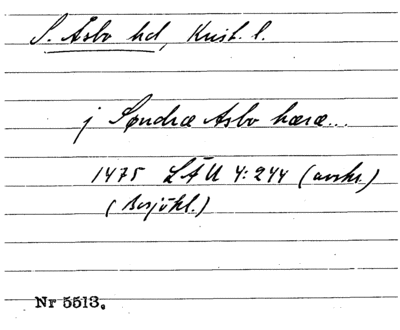 S. Åsbo hd, Krist. l.
j Søndræ Asbo hæræ...
1475 LÄU 4:244 (avskr.)
(Bosjökl.)
Nr 5513.